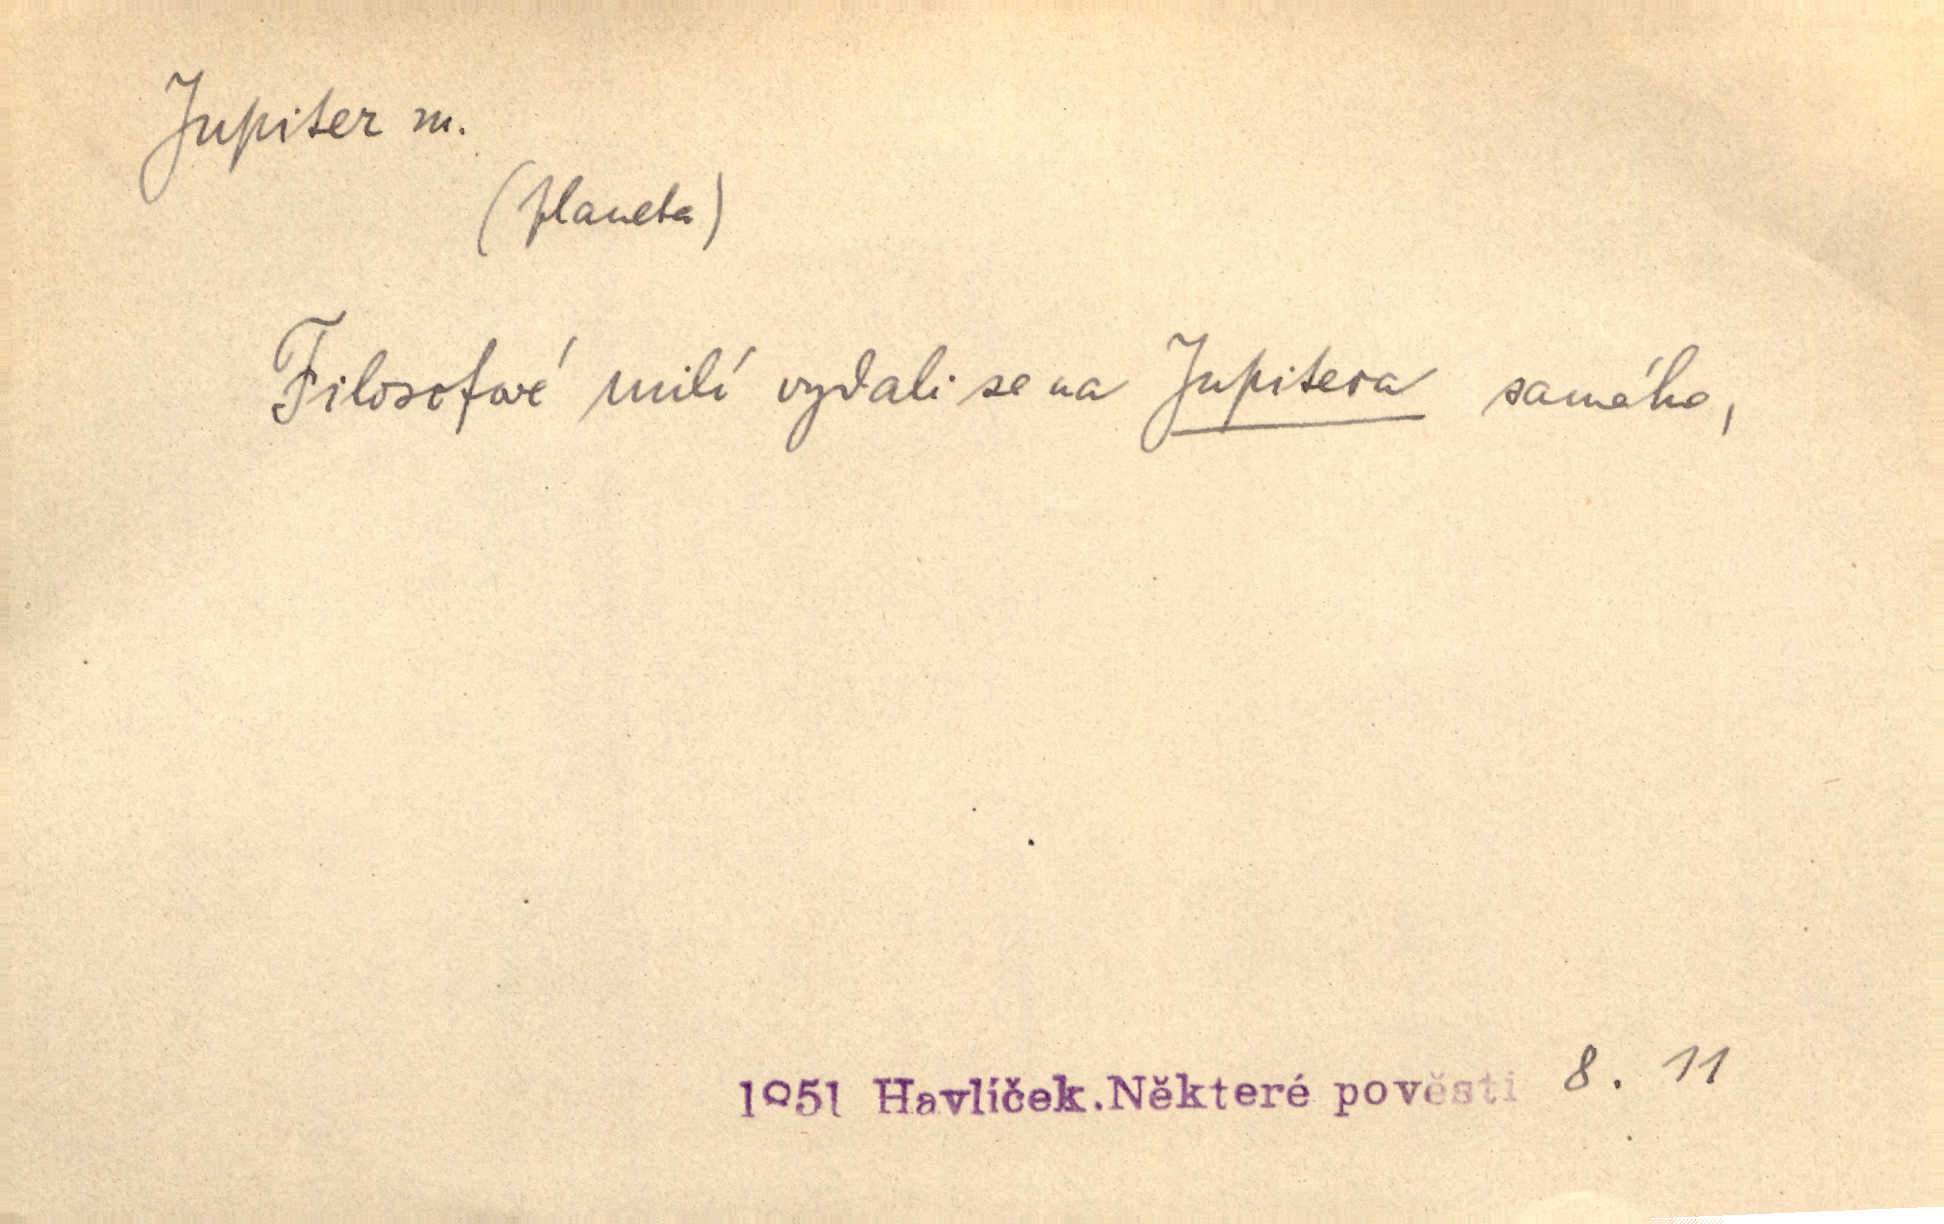 Jupiter m.
(planeta)
Filosofové milí vydali se na Jupitera samého,
1951 Havlíček. Některé pověsti 8. 11